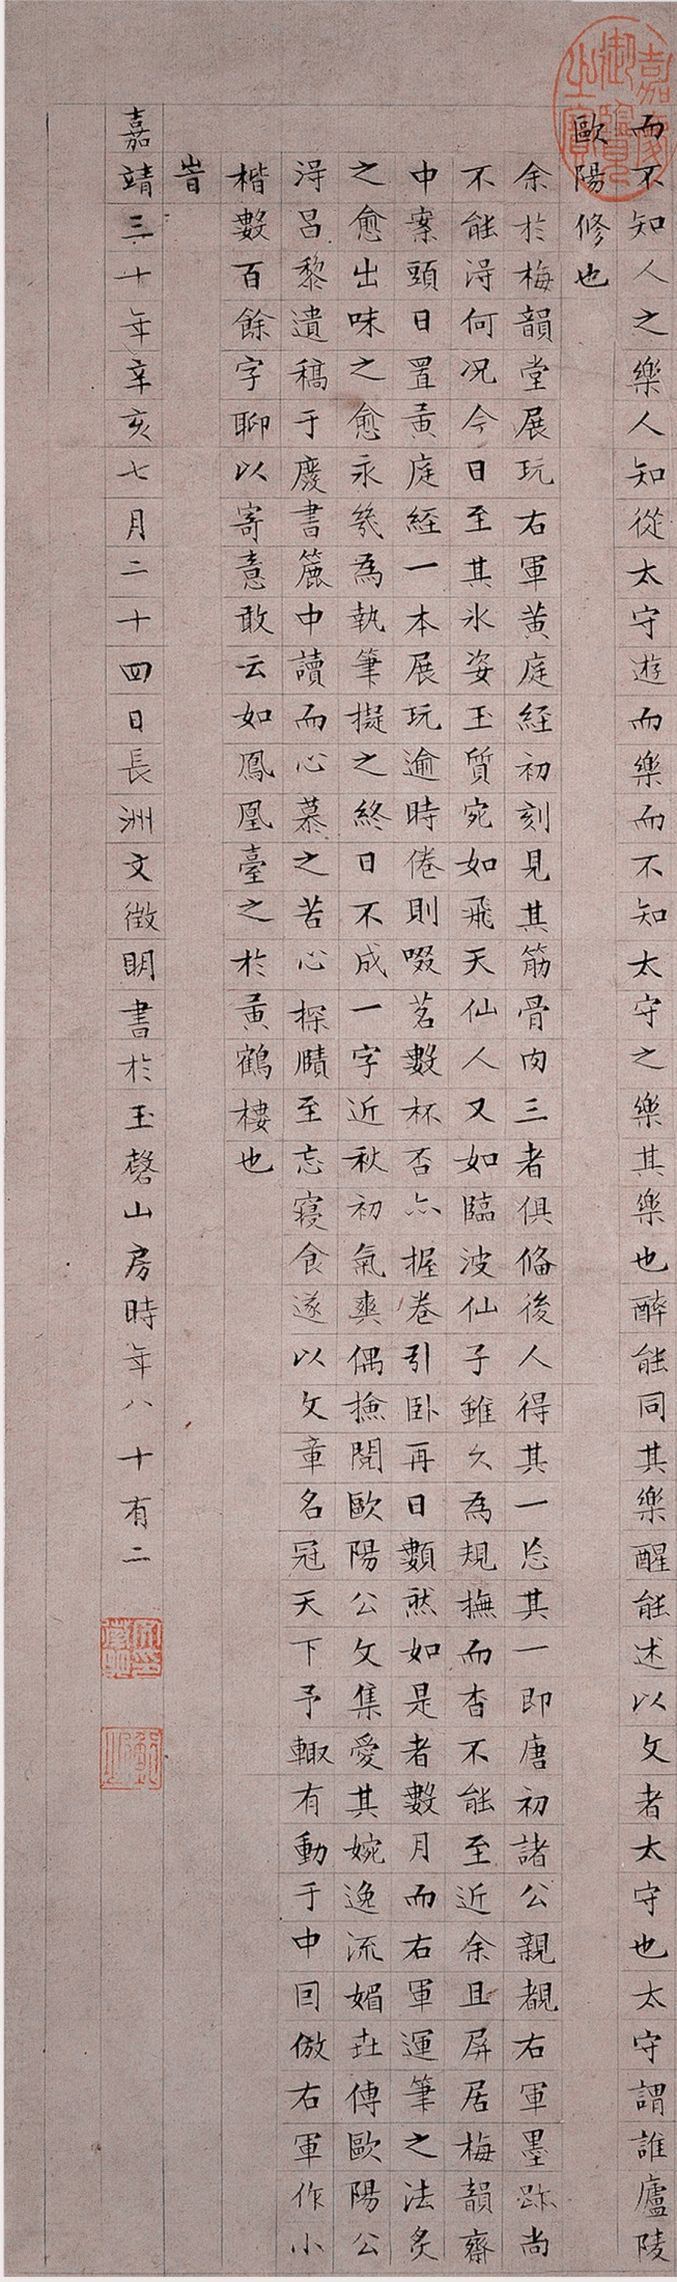 而不知人之樂人知從太守遊而樂而不知太守之樂其樂也醉能同其樂醒能述以文者太守也太守謂誰廬陵
歐陽修也
余於梅韻堂展玩右軍黃庭經初刻見其筋骨肉三者俱俻後人得其一忘其一即唐初諸公親覩右軍墨跡尚
不能淂何况今日至其氷姿玉質宛如飛天仙人又如臨波仙子雖久為規撫而杳不能至近余且屏居梅韻齋
中案頭日置黃庭經一本展玩逾時倦則啜茗數杯否亦握卷引卧再日數然如是者數月而右軍運筆之法炙
之愈出味之愈永幾為執筆擬之終日不成一字近秋初氣爽偶撿閱歐陽公文集愛其婉逸流媚丗傳歐陽公
淂昌黎遺稿于廢書簏中讀而心慕之苦心探賾至忘寢食遂以文章名冠天下予輙有動于中回倣右軍作小
楷數百餘字聊以寄意敢云如鳳凰臺之於黃鶴樓也
旹
嘉靖三十年辛亥七月二十四日長洲文徵明書於玉磬山房時年八十有二
嘉慶御覽之寶